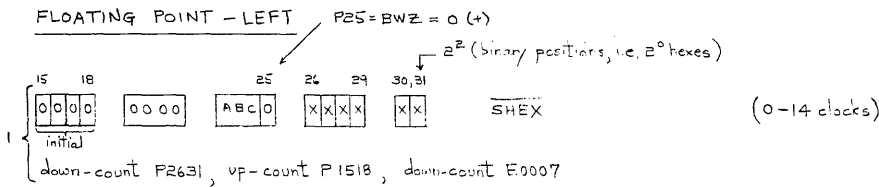 FLOATING POINT - LEFT P25 = BWZ = 0 (+)
2² (binary positions, i.e. 2⁰ hexes)
15 18 25 26 29 30,31
1 0 0 0 0 0 0 0 0 A B C 0 X X X X X X S̅H̅E̅X̅ (0-14 clocks)
initial
down-count P2631, up-count P1518, down-count E0007